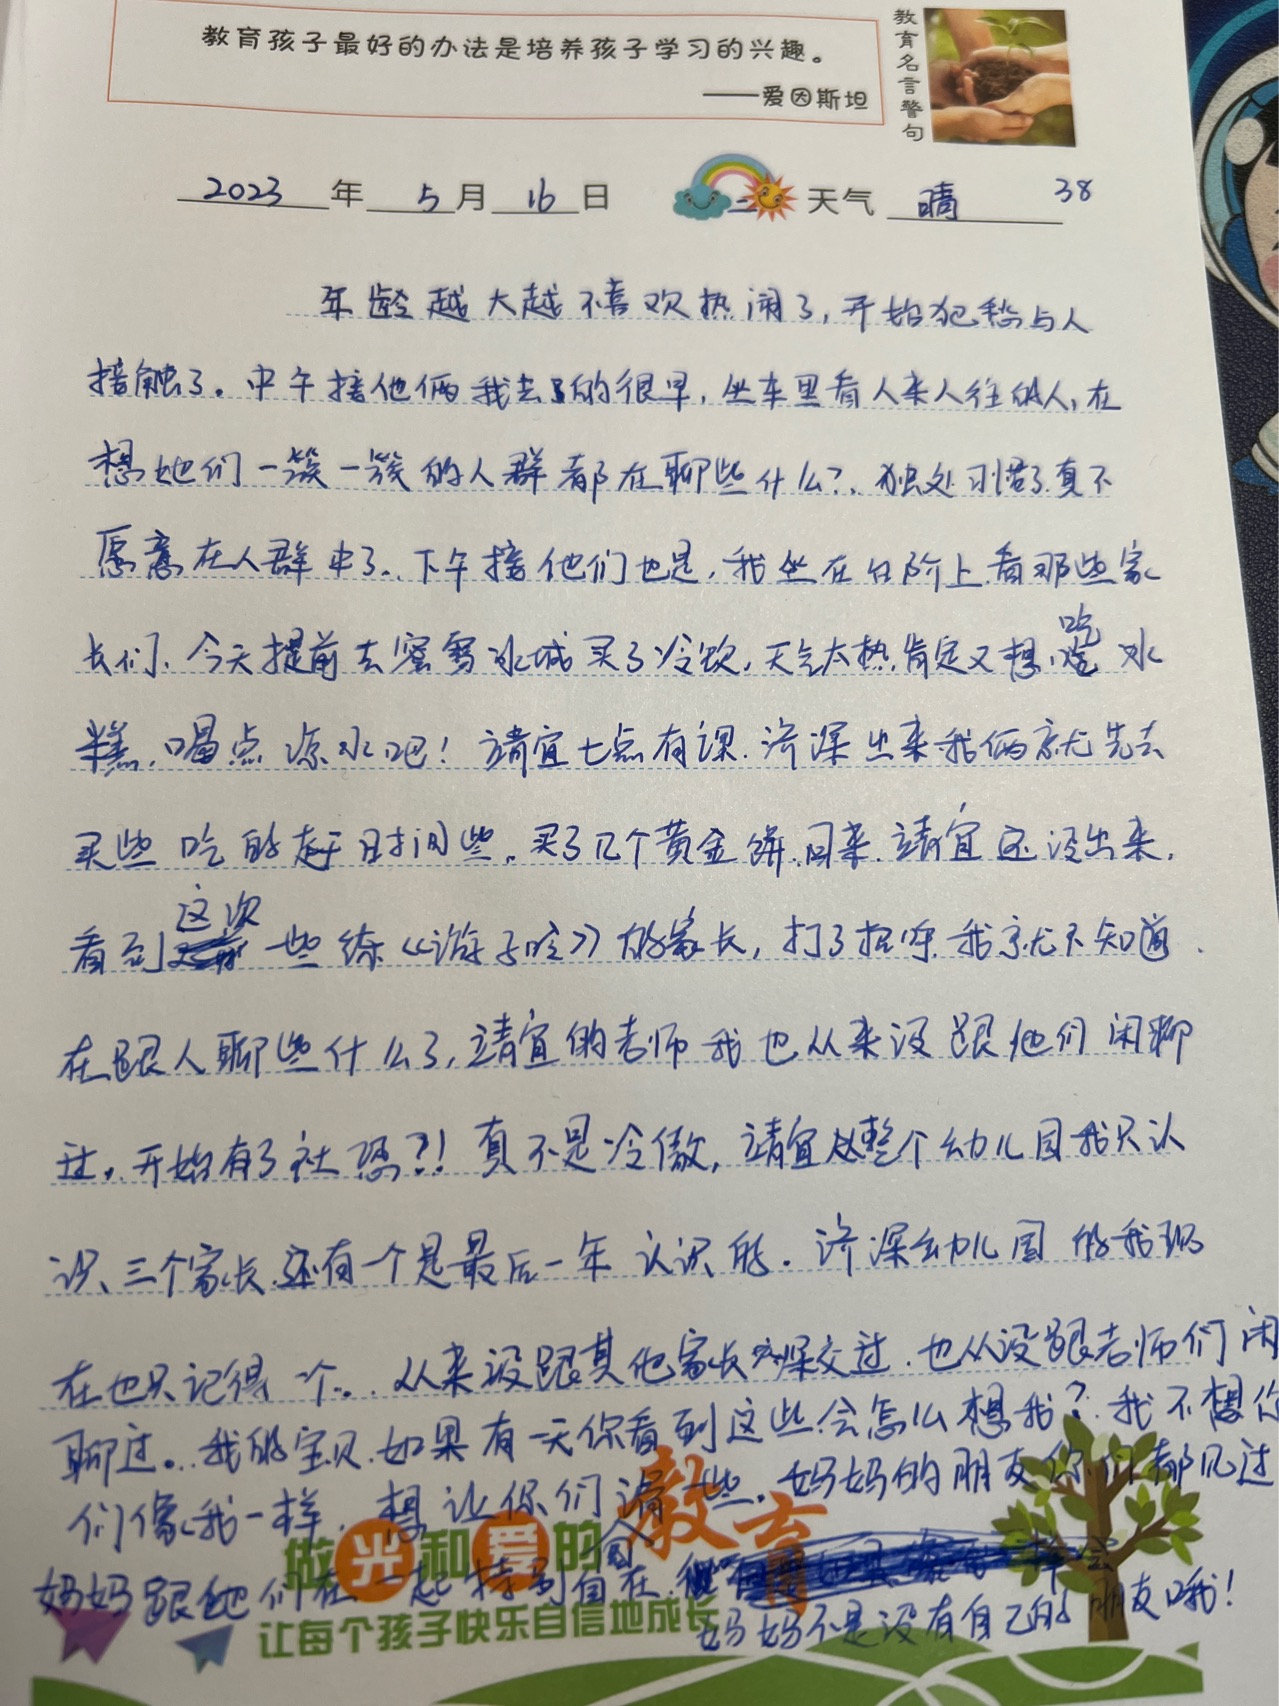 教育孩子最好的办法是培养孩子学习的兴趣。
——爱因斯坦
教育名言警句
2023年5月16日 天气 晴 38
年龄越大越不喜欢热闹了,开始犯愁与人
接触了。中午接他俩我去的很早,坐车里看人来人往的人,在
想她们一簇一簇的人群都在聊些什么?、独处习惯了真不
愿意在人群中了..下午接他们也是,我坐在台阶上看那些家
长们、今天提前去蜜雪冰城买了冷饮,天气太热肯定又想吃冰
糕,喝点凉水吧!靖宜七点有课.济深出来我俩就先去
买些吃的赶时间些。买了几个黄金饼.回来.靖宜还没出来.
看到这次一些练《游子吟》的家长,打了招呼.我就不知道.
在跟人聊些什么了,靖宜的老师我也从来没跟他们闲聊
过。开始有了社恐?!真不是冷傲,靖宜整个幼儿园我只认
识、三个家长.还有一个是最后一年认识的.济深幼儿园的我现
在也只记得一个...从来没跟其他家长深交过.也从没跟老师们闲
聊过...我的宝贝.如果有一天你看到这些.会怎么想我?.我不想你
们像我一样.想让你们一些.妈妈的朋友你们都见过
妈妈跟他们在一起特别自在.
妈妈不是没有自己的朋友哦!
做光和爱的教育
让每个孩子快乐自信地成长